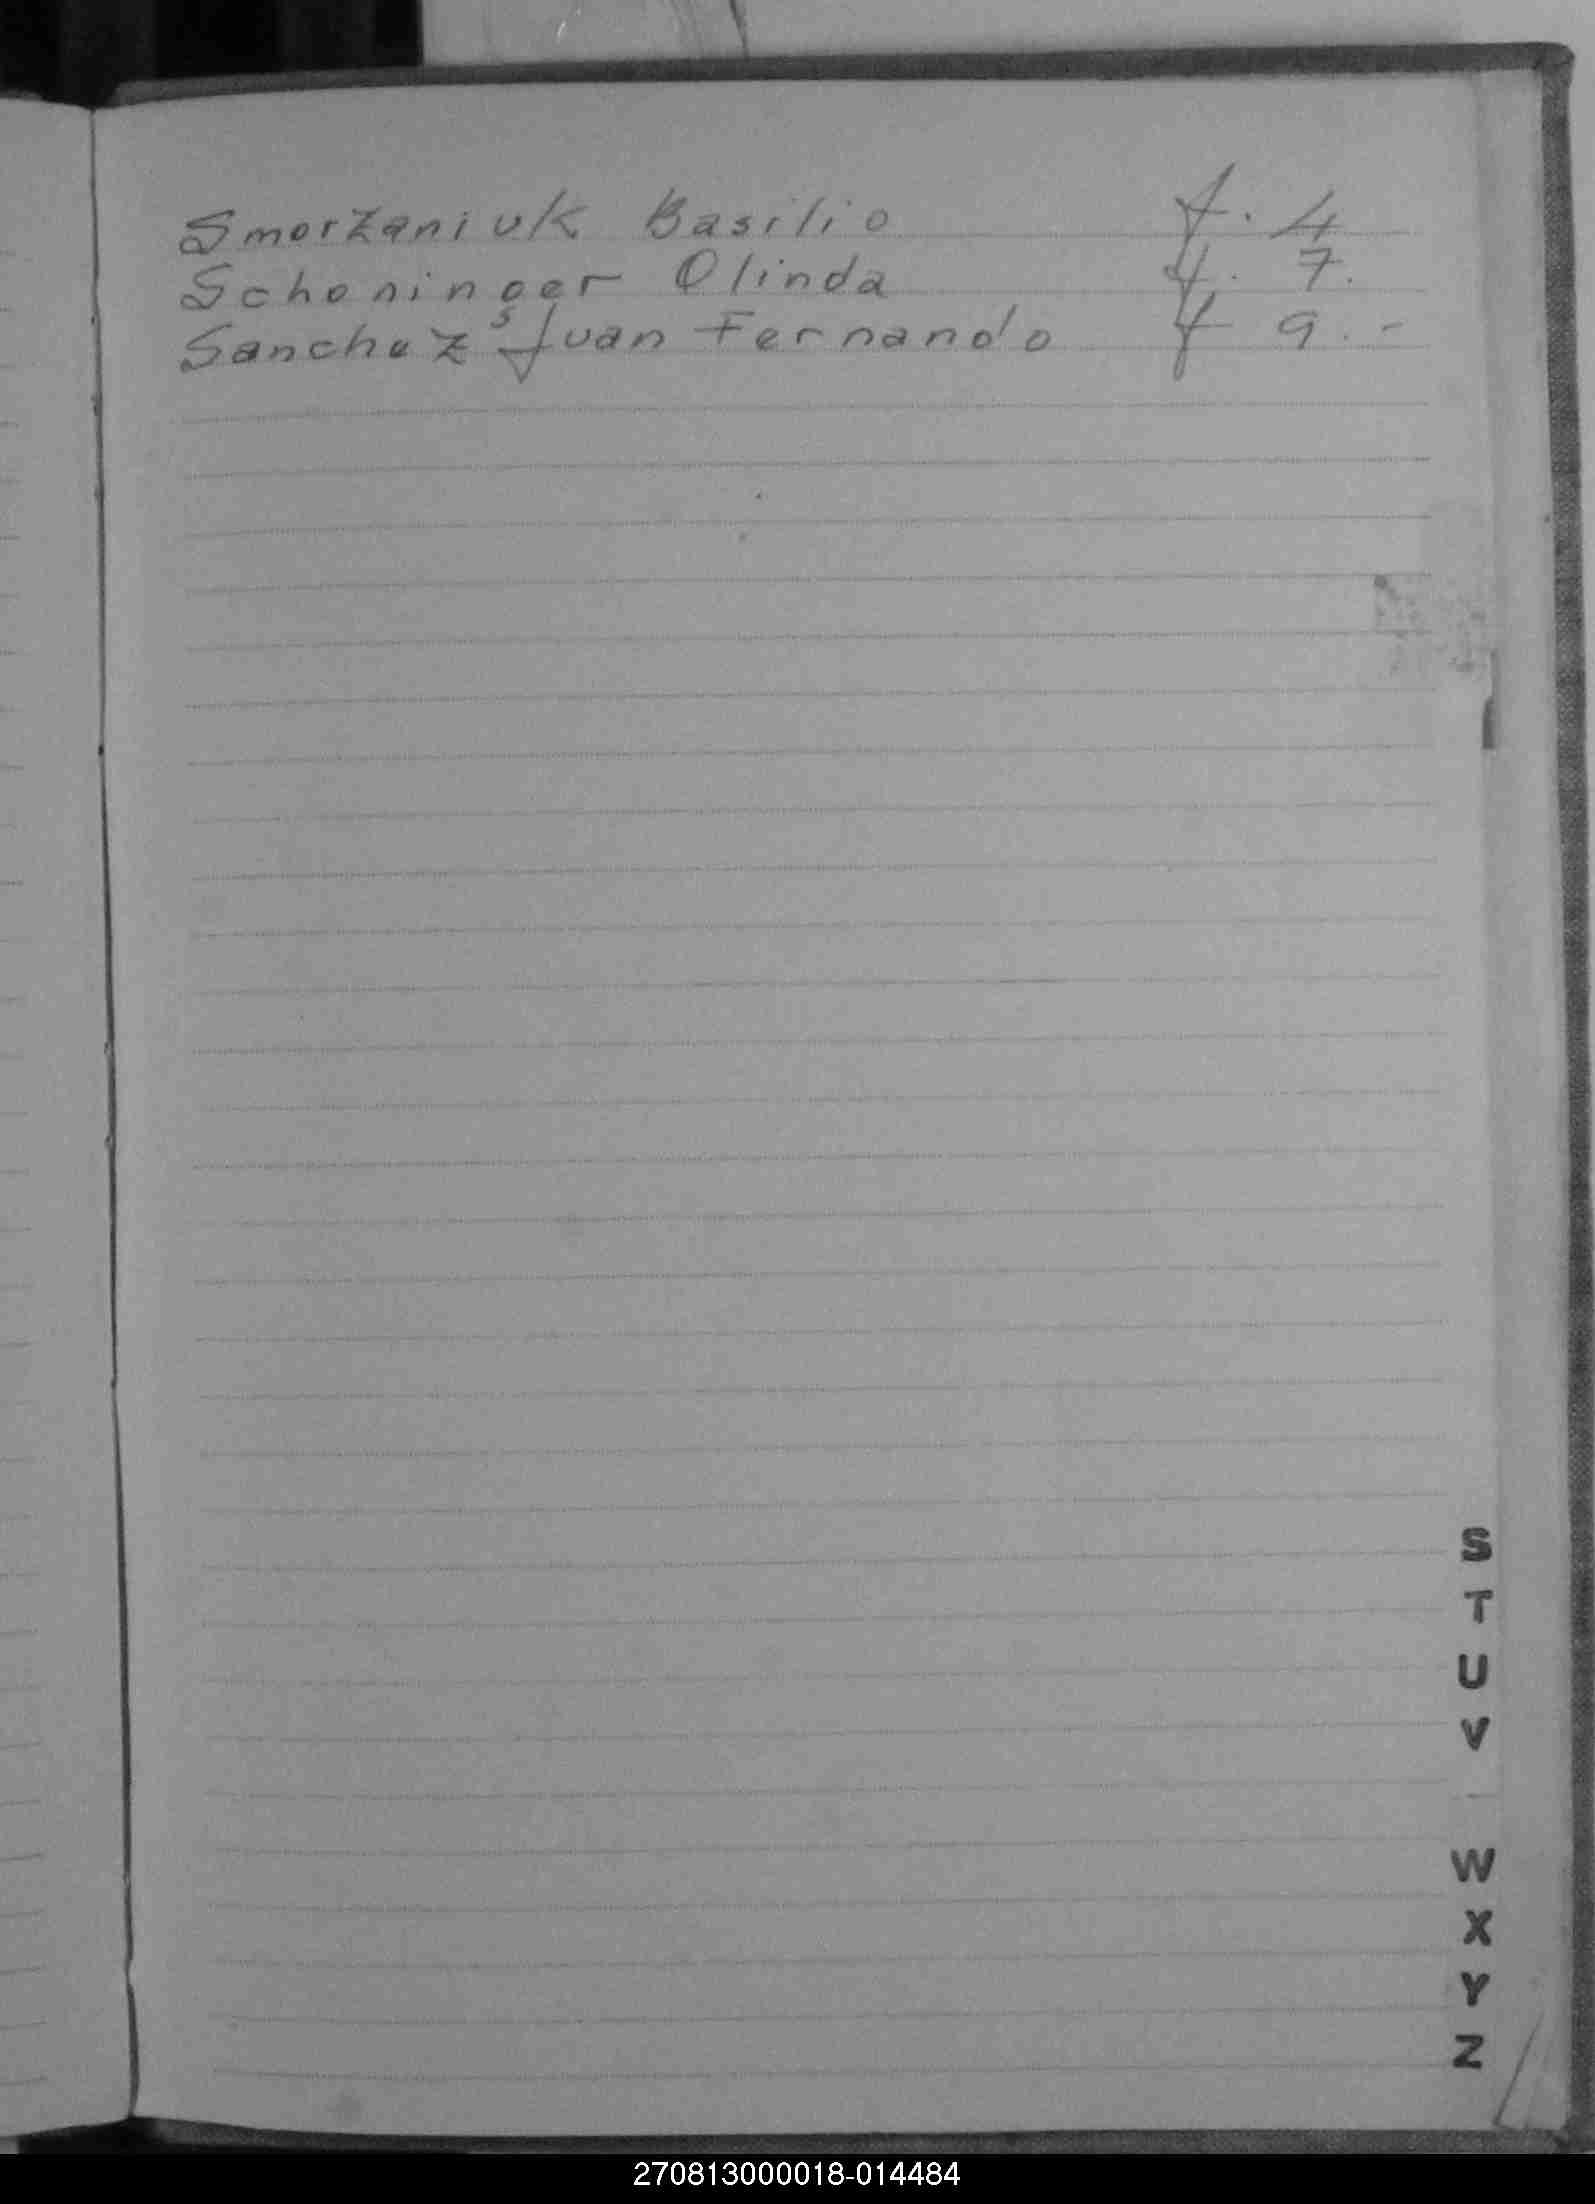 Smorzaniuk Basilio f. 4
Schoninger Olinda f. 7.
Sanchez Juan Fernando f 9.-
S
T
U
V
W
X
Y
Z
270813000018-014484